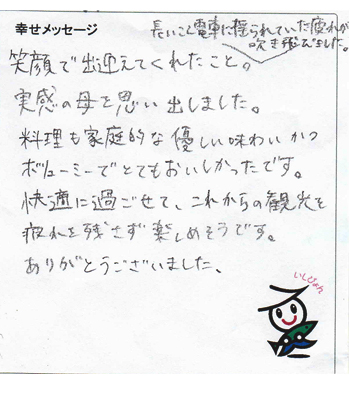 幸せメッセージ
長いこと電車に揺られていた疲れが
吹き飛びました。
笑顔で出迎えてくれたこと。
実感の母を思い出しました。
料理も家庭的な優しい味わいかつ
ボリューミーでとてもおいしかったです。
快適に過ごせて、これからの観光を
疲れを残さず楽しめそうです。
ありがとうございました。
いしぴょん